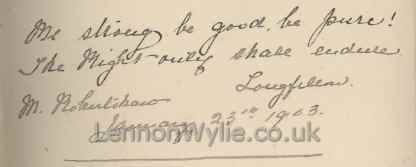 Be strong, be good, be pure!
The Right only shall endure
Longfellow.
M. Robertshaw
January 23rd 1903.
LennonWylie.co.uk